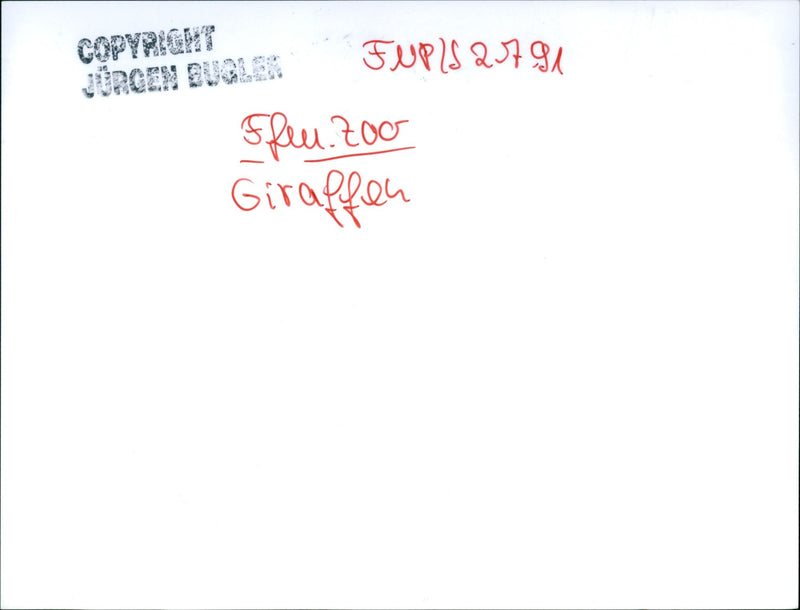 COPYRIGHT
JÜRGEN BUGLER
FNP/S 2.7.91
Ffm. Zoo
Giraffen